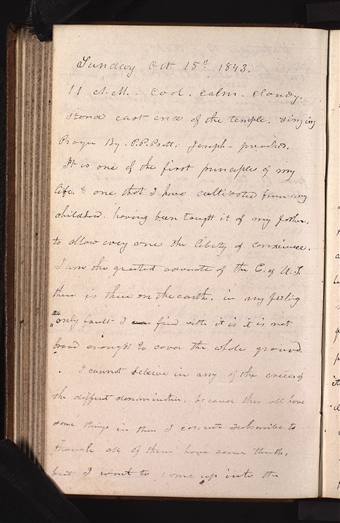 Sunday Oct 15th 1843.
11 A.M. Cool. calm. cloudy.
stand east end of the temple. singing
Prayer By. P.P. Pratt. Joseph
It is one of the first principles of my
life. & one that I have cultivated from my
childhood. having been taught it of my father.
to allow every one the liberty of conscience.
I am the greatest advocate of the C. of U.S.
there is there on the earth. in my feelings
only fault I find with it is it is not
broad enough to cover the whole ground.
I cannot believe in any of the creeds of
the different denominations. because they all have
some things in them I cannot subscribe to
though all of them have some truth.
but I want to come up into the